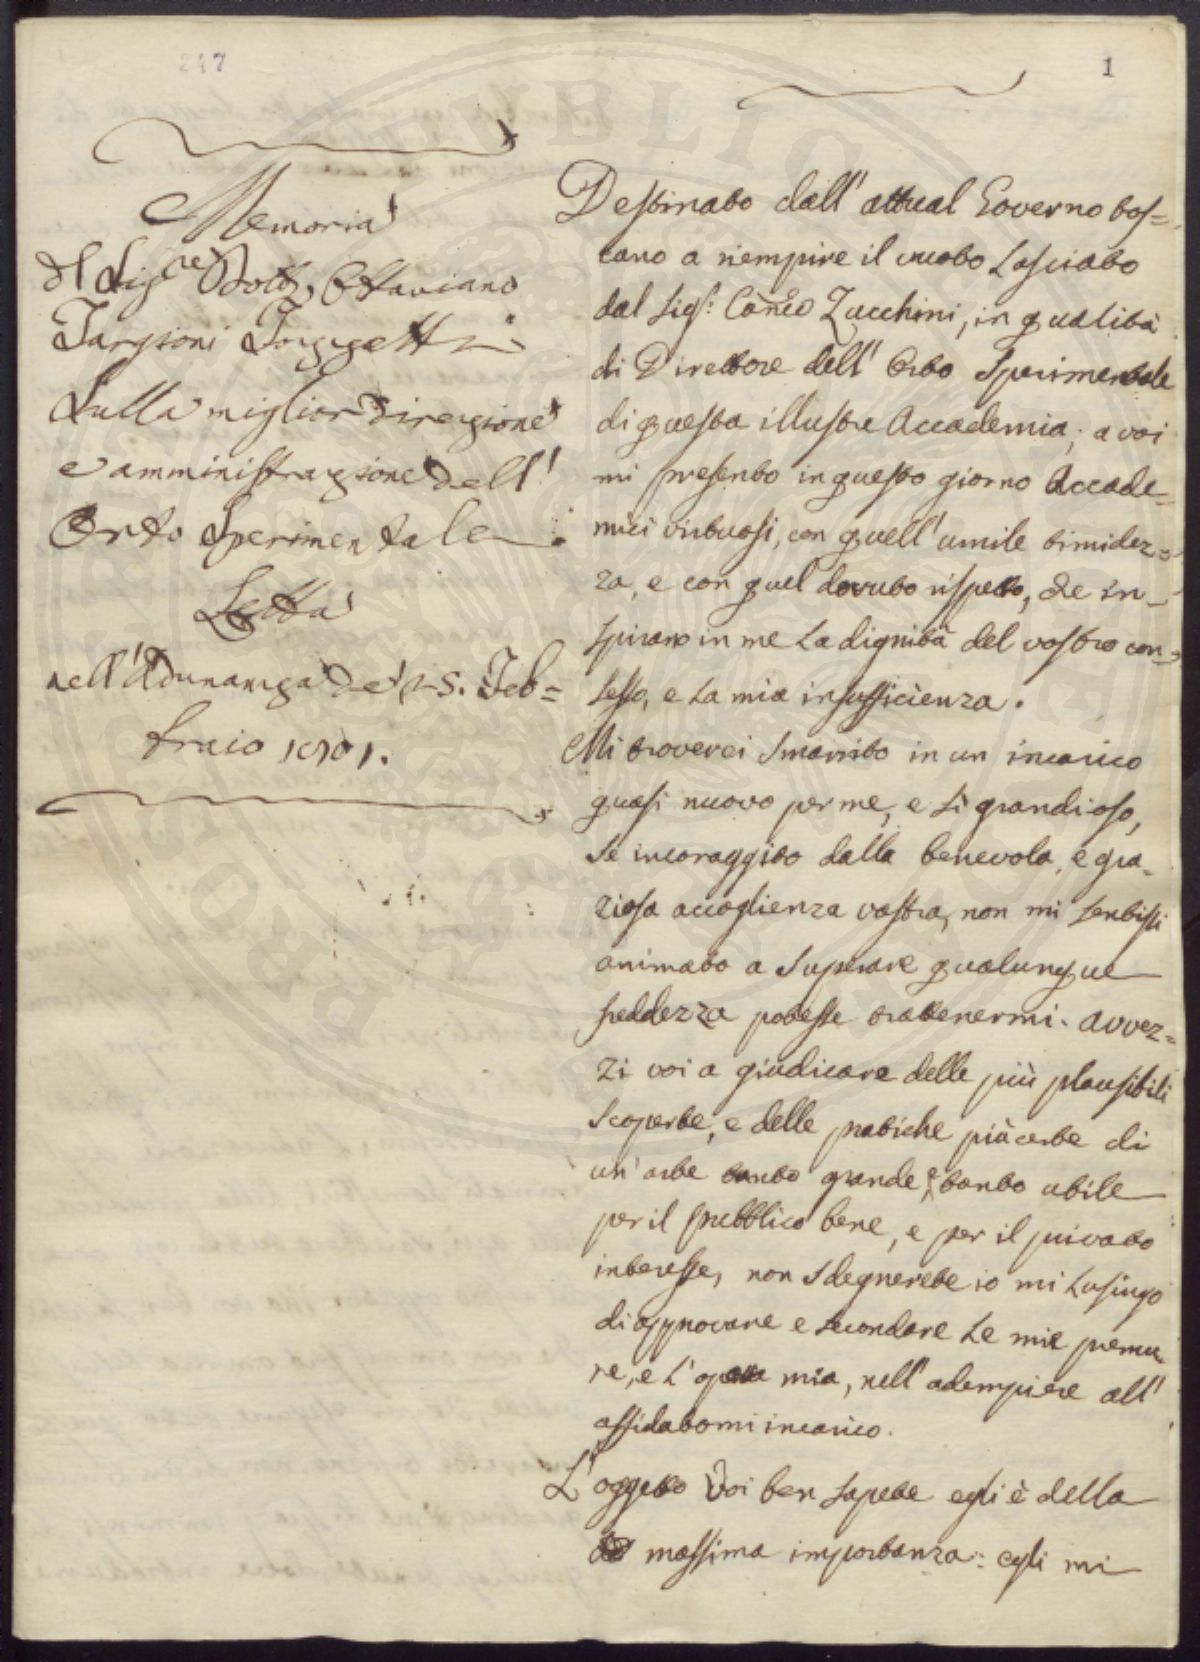 247
1
Memoria
Del Sig.re Dott. Ottaviano
Targioni Tozzetti
Sulla miglior direzione
e amministrazione dell'
Orto Sperimentale
Letta
nell'Adunanza de'
Feb=
braio 1801.
Destinato dall'attual Governo tos=
cano a riempire il vuoto lasciato
dal Sig.: Can.co Zucchini, in qualità
di Direttore dell'Orto Sperimentale
di questa illustre Accademia; a voi
mi presento in questo giorno Accade=
mici virtuosi, con quell'umile timidez=
za, e con quel dovuto rispetto, che in=
spirano in me la dignità del vostro con=
sesso, e la mia insufficienza.
Mi troverei smarrito in un incarico
quasi nuovo per me, e sì grandioso,
se incoraggito dalla benevola, e gra=
ziosa accoglienza vostra, non mi sentissi
animato a superare qualunque
freddezza potesse trattenermi. Avvez=
zi voi a giudicare delle più plausibili
scoperte, e delle pratiche più certe di
un'arte tanto grande, e tanto utile
per il pubblico bene, e per il privato
interesse, non sdegnerete io mi lusingo
di approvare e secondare le mie premu=
re, e l'opera mia, nell'adempiere all'
affidatomi incarico.
L'oggetto Voi ben sapete egli è della
massima importanza: egli mi
PUBLIC